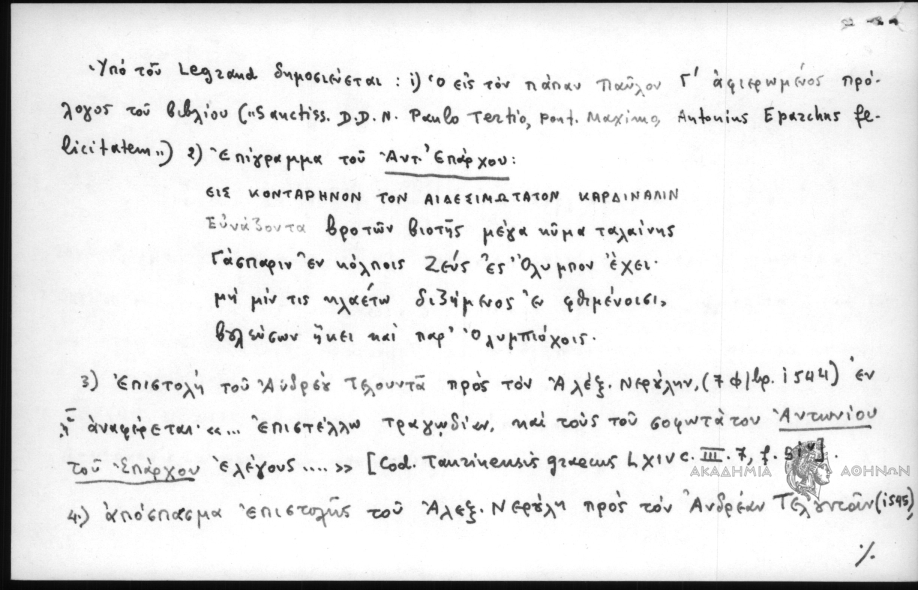 Ὑπό τοῦ Legrand δημοσιεύεται: 1) Ὁ εἰς τὸν πάπαν Παῦλον Γ' ἀφιερωμένος πρό-
λογος τοῦ βιβλίου („Sanctiss. D.D.N. Paulo Tertio, pont. Maximo, Antonius Eparchus fe-
licitatem„) 2) Ἐπίγραμμα τοῦ Ἀντ. Ἐπάρχου:
ΕΙΣ ΚΟΝΤΑΡΗΝΟΝ ΤΟΝ ΑΙΔΕΣΙΜΩΤΑΤΟΝ ΚΑΡΔΙΝΑΛΙΝ
Εὐνάζοντα βροτῶν βιοτῆς μέγα κῦμα ταλαίνης
Γάσπαριν ἐν κόλποις Ζεύς ἐς Ὄλυμπον ἔχει·
μή μίν τις κλαέτω διζήμενος ἐν φθιμένοισι,
βουλεύσων ἥκει καί παρ' Ὀλυμπιόχοις.
3) Ἐπιστολή τοῦ Ἀνδρέου Τελουντᾶ πρὸς τὸν Ἀλέξ. Νερούλην, (7 φ/βρ. 1544) ἐν
ᾗ ἀναφέρεται· «... Ἐπιστέλλω τραγῳδίων, καί τοὺς τοῦ σοφωτάτου Ἀντωνίου
τοῦ Ἐπάρχου ἐλέγους .... » [Cod. Taurinensis graecus LXIV c. III. 7, f.
ΑΚΑΔΗΜΙΑ ΑΘΗΝΩΝ
4.) ἀπόσπασμα ἐπιστολῆς τοῦ Ἀλεξ. Νερούλη πρὸς τὸν Ἀνδρέαν Τελουντᾶν (1545),
./.